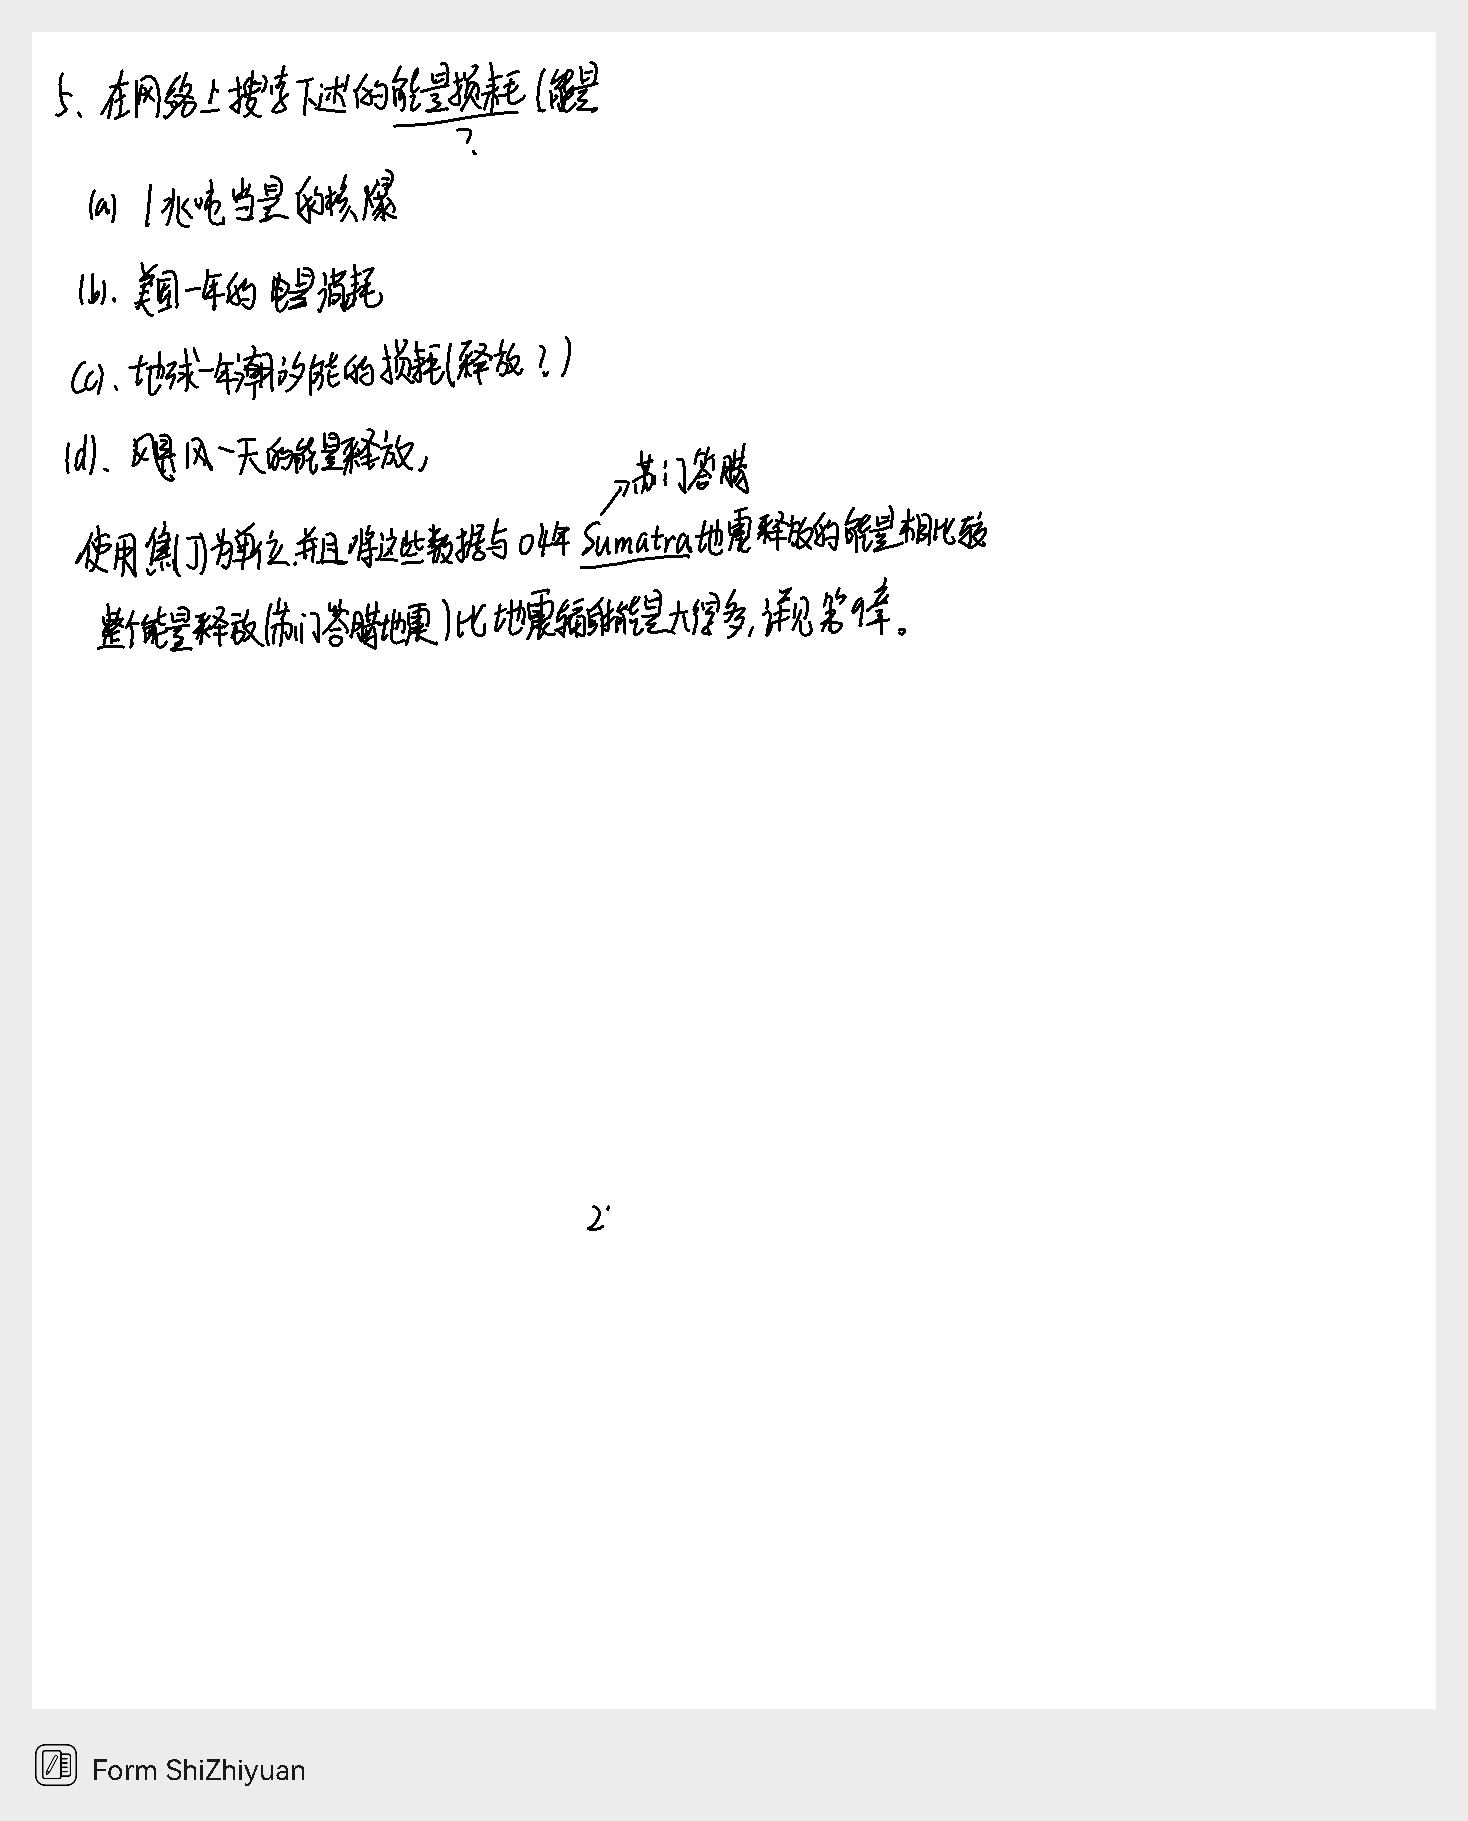 5、在网络上搜索下述的能量损耗(能量
?
(a) 1兆吨当量的核爆
(b). 美国一年的电量消耗
(c)、地球一年潮汐能的损耗(释放?)
(d)、飓风一天的能量释放,
苏门答腊
使用焦(J)为单位.并且将这些数据与04年Sumatra地震释放的能量相比较
整个能量释放(苏门答腊地震)比地震辐射能量大得多,详见第9章。
2'
Form ShiZhiyuan